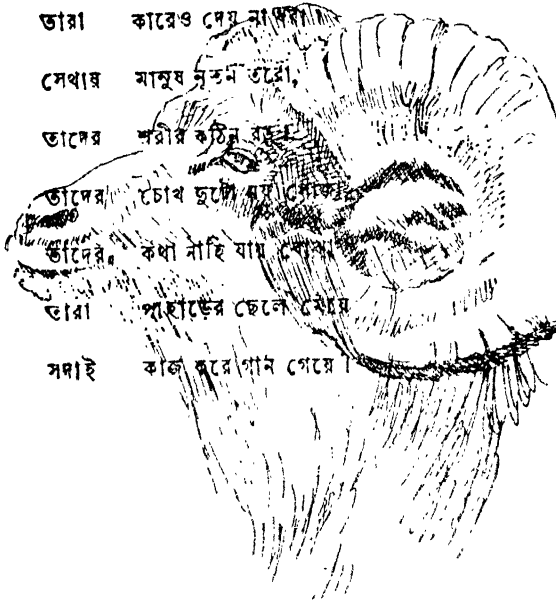 তারা কারেও দেয় না ধরা।
সেথায় মানুষ নূতন তরো,
তাদের শরীর কঠিন বড়ো।
তাদের চোখ দুটো নয় সোজা,
তাদের কথা নাহি যায় বোঝা,
তারা পাহাড়ের ছেলে মেয়ে
সদাই কাজ করে গান গেয়ে।